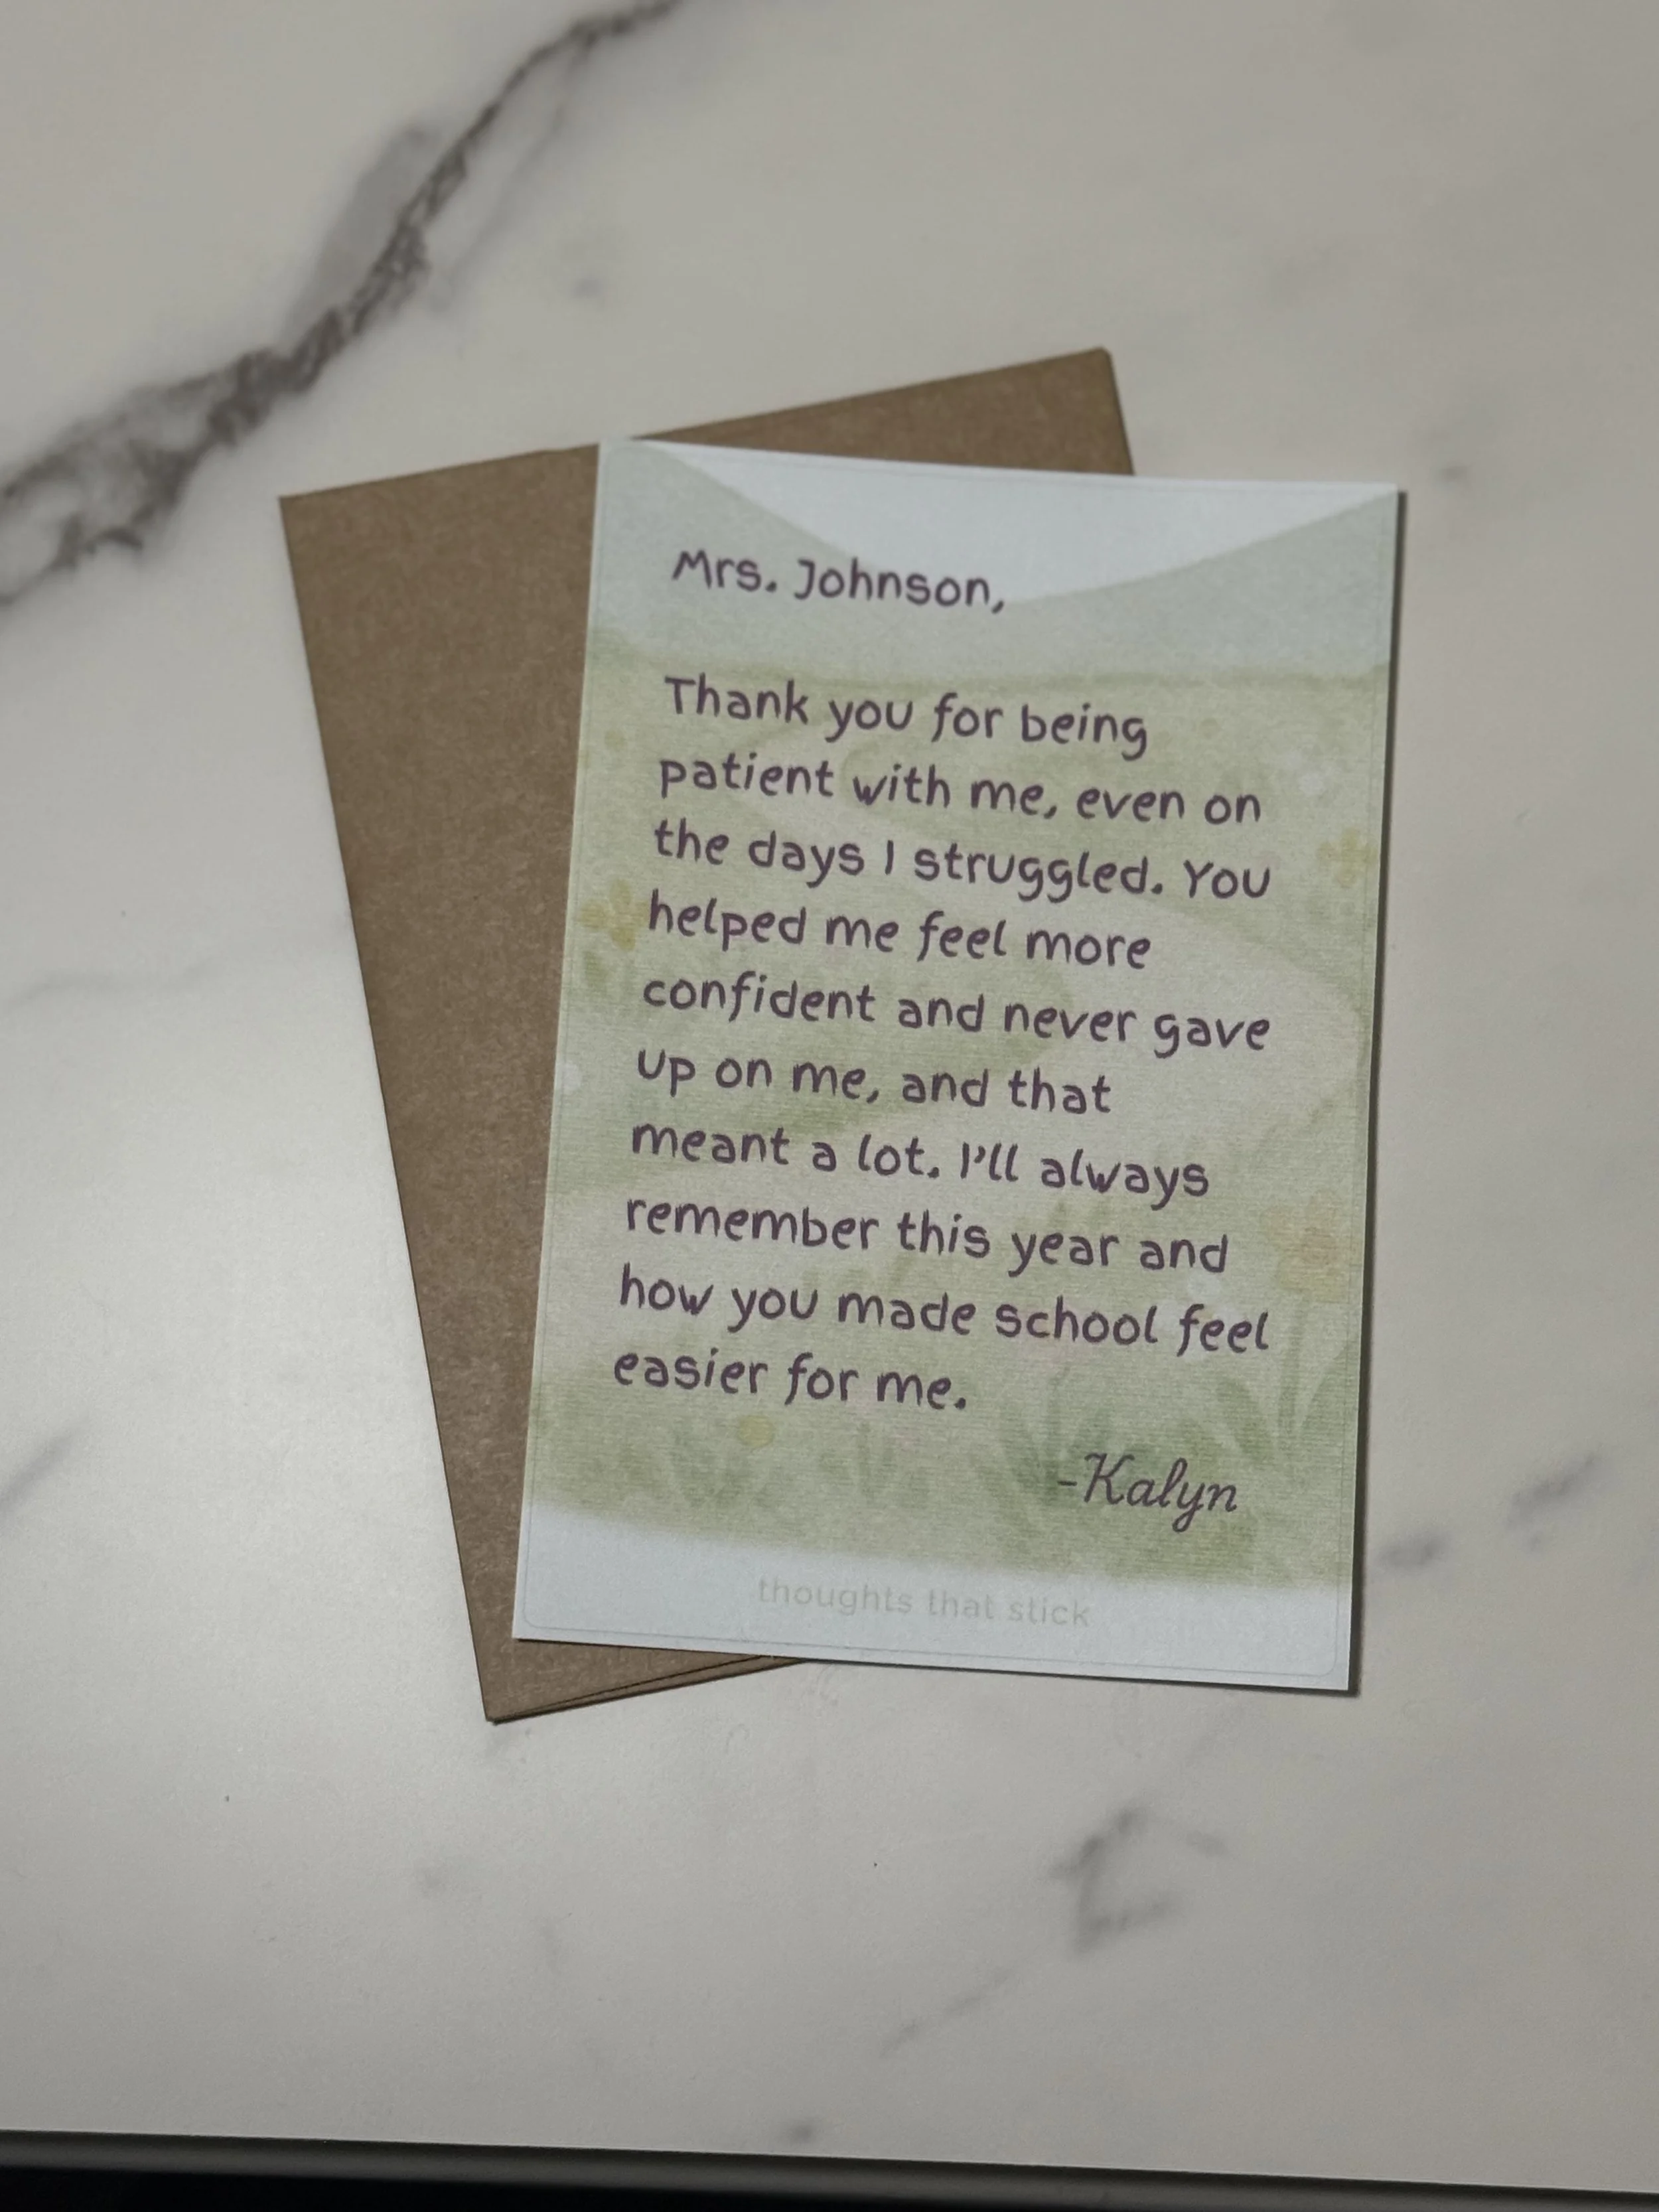 Mrs. Johnson,
Thank you for being
patient with me, even on
the days I struggled. You
helped me feel more
confident and never gave
up on me, and that
meant a lot. I'll always
remember this year and
how you made school feel
easier for me.
-Kalyn
thoughts that stick